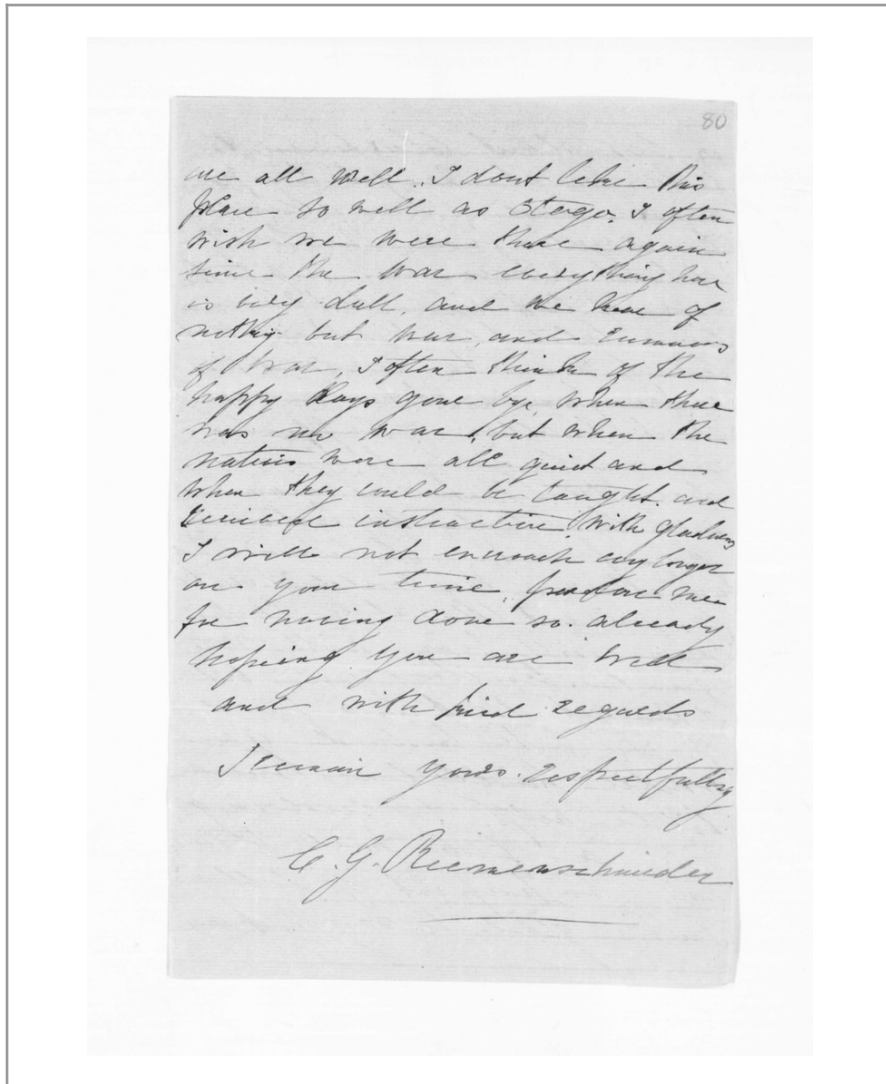 80
are all well. I dont like this
place so well as Otago. I often
wish we were there again
since the war everything here
is very dull, and we hear of
nothing but war, and rumours
of war, I often think of the
happy days gone bye, when there
was no war, but when the
natives were all quiet and
when they could be taught and
received instruction with gladness
I will not encroach any longer
on your time, pardon me
for having done so already
hoping you are well
and with kind regards
I remain yours respectfully
C. G. Riemenschneider